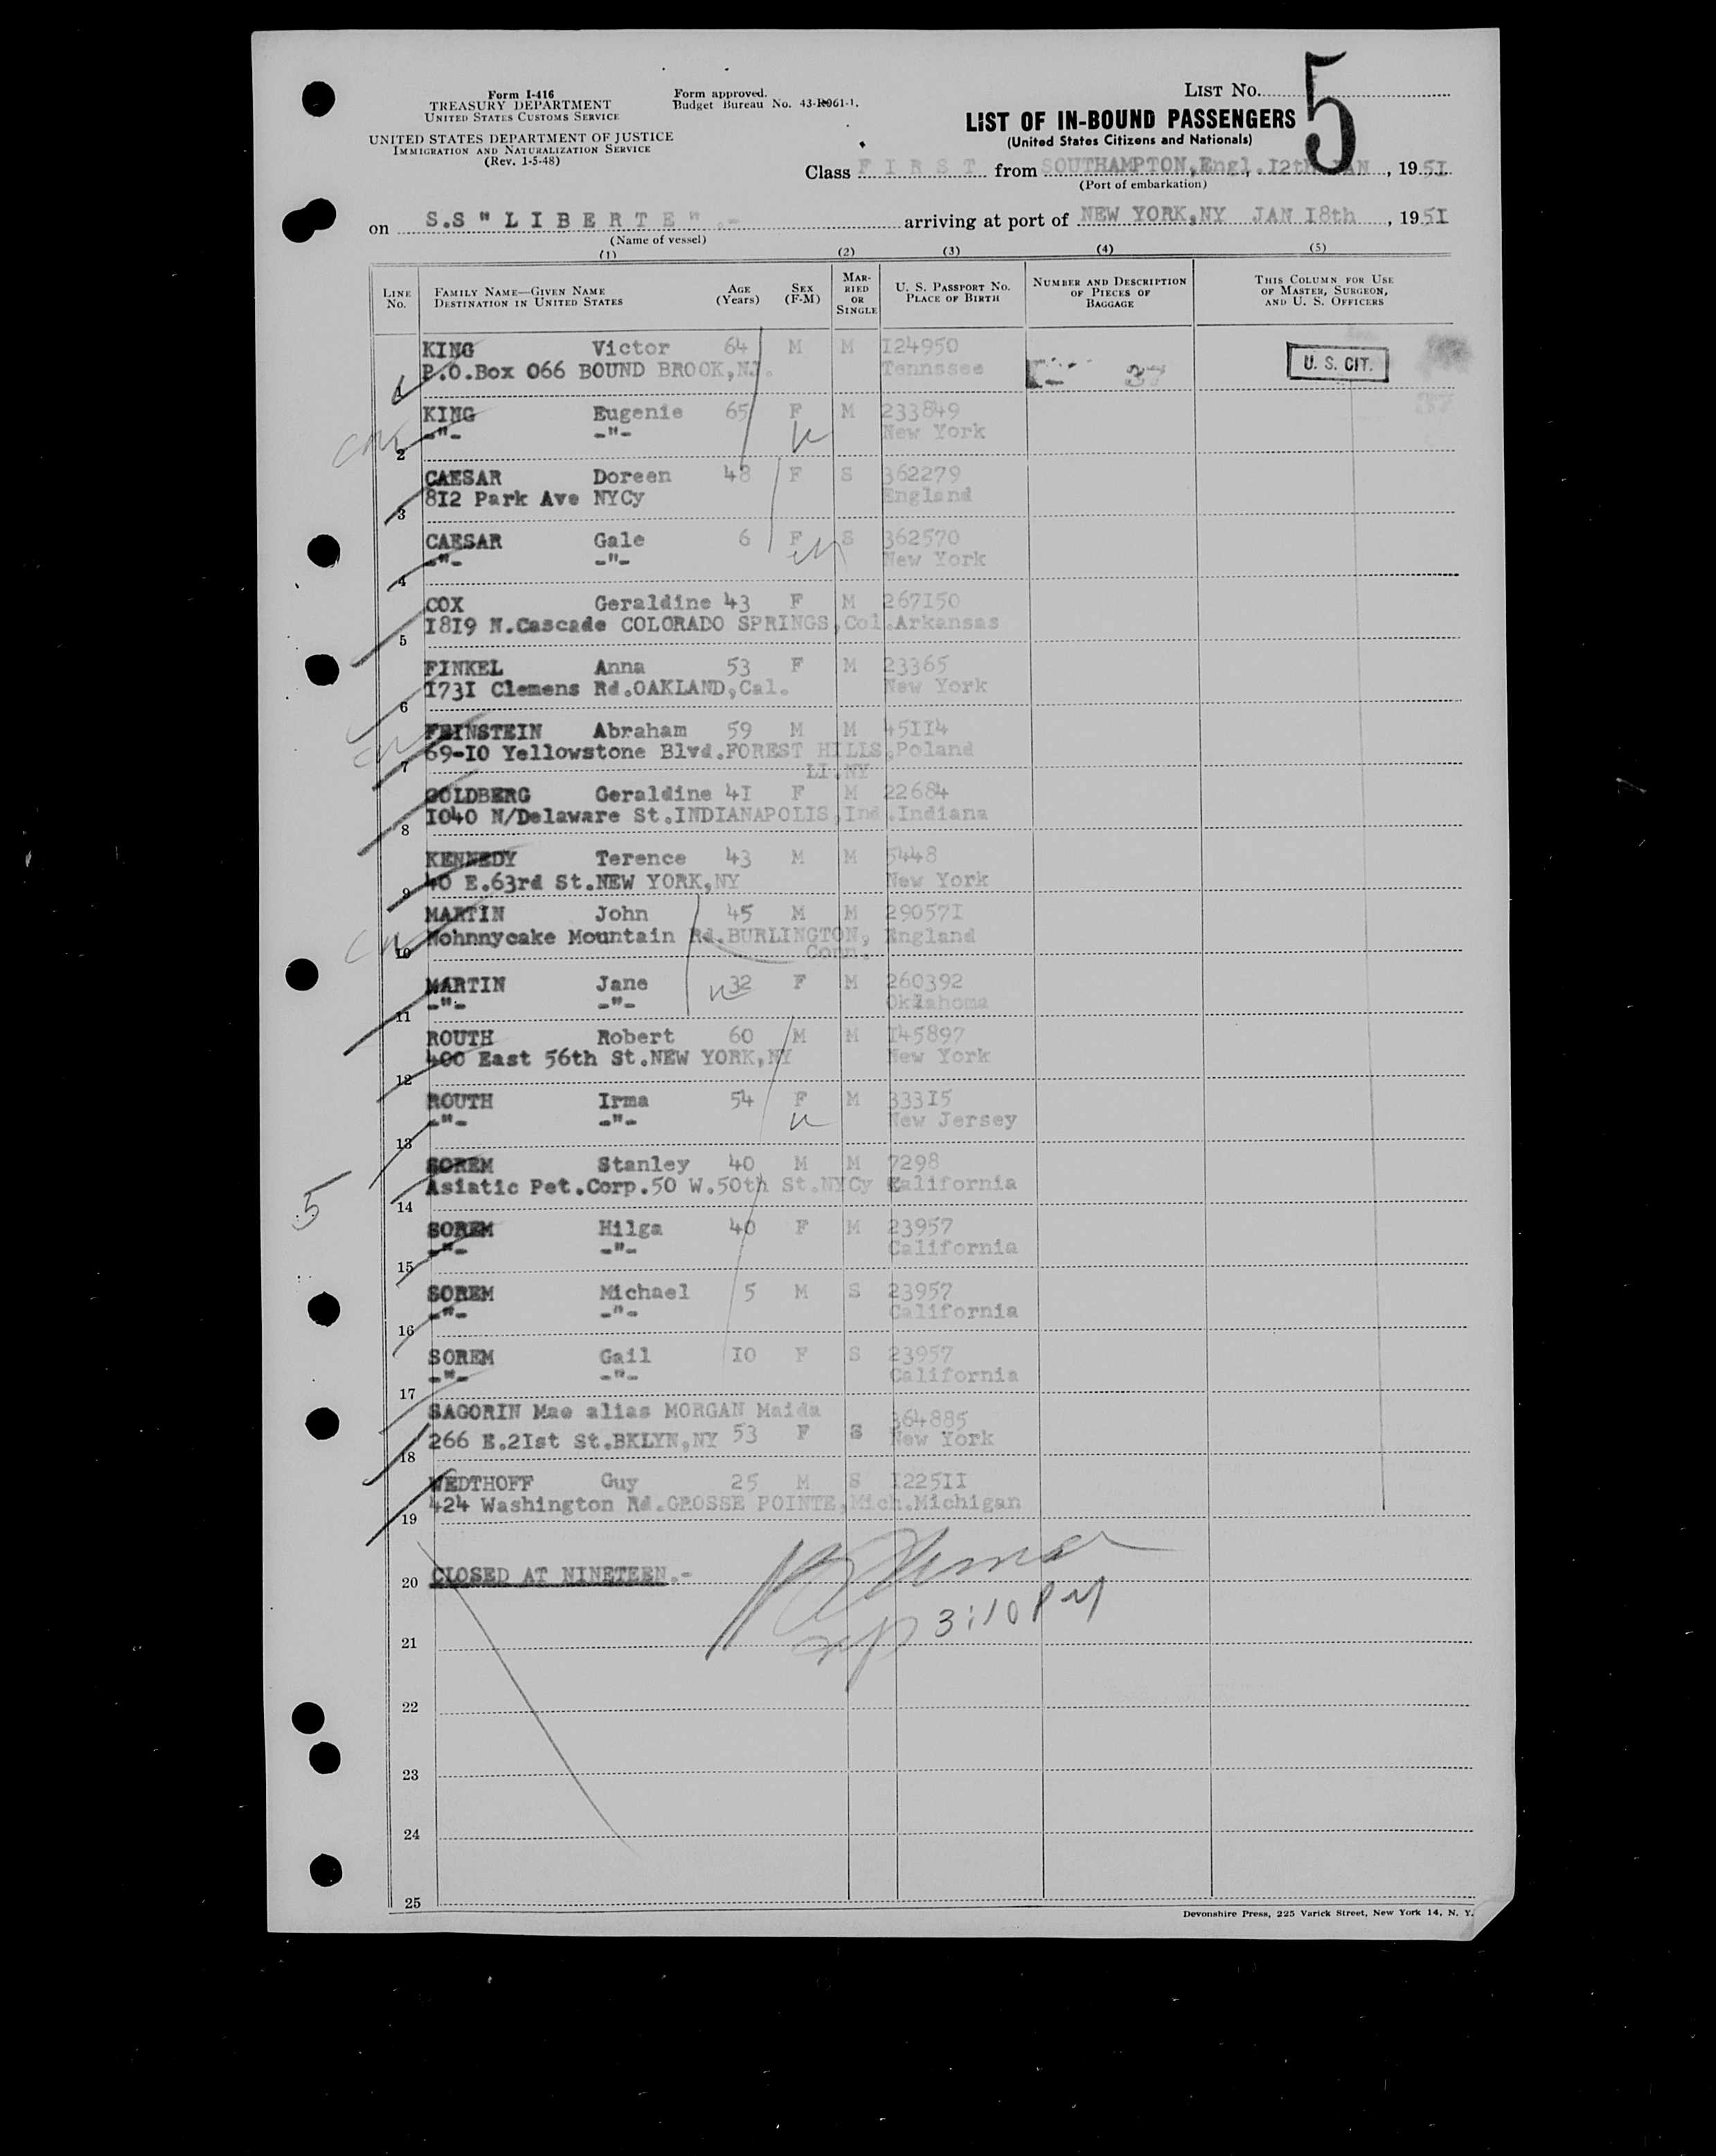 Form I-416
TREASURY DEPARTMENT
UNITED STATES CUSTOMS SERVICE
UNITED STATES DEPARTMENT OF JUSTICE
IMMIGRATION AND NATURALIZATION SERVICE
(Rev. 1-5-48)
Form approved.
Budget Bureau No. 43-R061-1.
LIST No. 5
LIST OF IN-BOUND PASSENGERS
(United States Citizens and Nationals)
Class FIRST from SOUTHAMPTON,Engl. 12th JAN, 1951
(Port of embarkation)
on S.S "LIBERTE".- arriving at port of NEW YORK,NY JAN 18th, 1951
(Name of vessel)
(1) (2) (3) (4) (5)
LINE No. FAMILY NAME—GIVEN NAME DESTINATION IN UNITED STATES AGE (Years) SEX (F-M) MARRIED OR SINGLE U. S. PASSPORT NO. PLACE OF BIRTH NUMBER AND DESCRIPTION OF PIECES OF BAGGAGE THIS COLUMN FOR USE OF MASTER, SURGEON, AND U. S. OFFICERS
KING Victor 64 M M 124950
1 P.O.Box 066 BOUND BROOK,NJ. Tennssee 37 U. S. CIT.
KING Eugenie 65 F M 233849
2 -"- -"- New York
CAESAR Doreen 48 F S 362279
3 812 Park Ave NYCy England
CAESAR Gale 6 F S 362570
4 -"- -"- New York
COX Geraldine 43 F M 267150
5 1819 N.Cascade COLORADO SPRINGS,Col.Arkansas
FINKEL Anna 53 F M 23365
6 1731 Clemens Rd.OAKLAND,Cal. New York
FEINSTEIN Abraham 59 M M 45114
7 69-10 Yellowstone Blvd.FOREST HILLS,Poland
LI.NY
GOLDBERG Geraldine 41 F M 22684
8 1040 N/Delaware St.INDIANAPOLIS,Ind.Indiana
KENNEDY Terence 43 M M 5448
9 40 E.63rd St.NEW YORK,NY New York
MARTIN John 45 M M 290571
10 Nohnnycake Mountain Rd.BURLINGTON, England
Conn.
MARTIN Jane 32 F M 260392
11 -"- -"- Oklahoma
ROUTH Robert 60 M M 145897
12 400 East 56th St.NEW YORK,NY New York
ROUTH Irma 54 F M 33315
13 -"- -"- New Jersey
SOREM Stanley 40 M M 7298
14 Asiatic Pet.Corp.50 W.50th St.NYCy California
5
SOREM Hilga 40 F M 23957
15 -"- -"- California
SOREM Michael 5 M S 23957
16 -"- -"- California
SOREM Gail 10 F S 23957
17 -"- -"- California
SAGORIN Mae alias MORGAN Maida 364885
18 266 E.21st St.BKLYN,NY 53 F S New York
WEDTHOFF Guy 25 M S 122511
19 424 Washington Rd.GROSSE POINTE,Mich.Michigan
20 CLOSED AT NINETEEN.-
3:10 PM
21
22
23
24
25
Devonshire Press, 225 Varick Street, New York 14, N. Y.